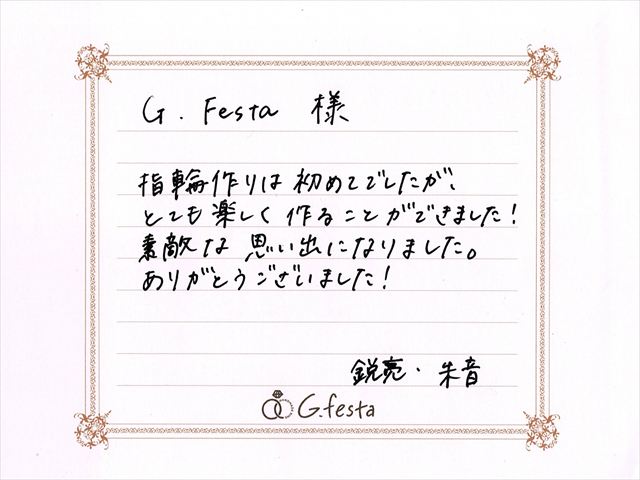 G. Festa 様
指輪作りは初めてでしたが、
とても楽しく作ることができました!
素敵な思い出になりました。
ありがとうございました!
鋭亮・朱音
G.festa